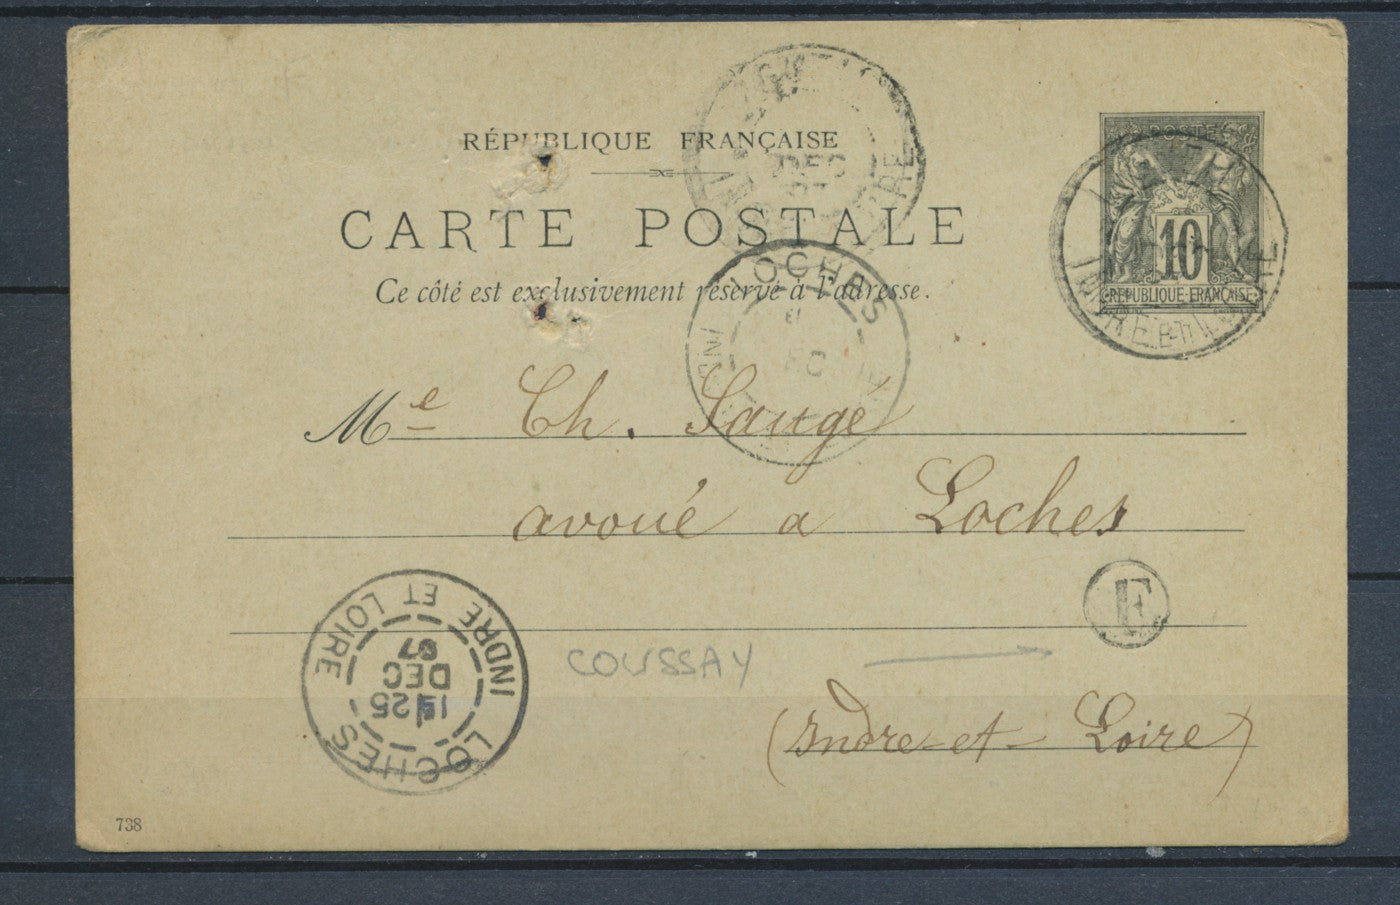 RÉPUBLIQUE FRANÇAISE
CARTE POSTALE
Ce côté est exclusivement réservé à l'adresse.
POSTES
10
REPUBLIQUE FRANÇAISE
INDRE ET LOIRE
DEC
LOCHES
Me Ch. Saugé
avoué a Loches
E
COUSSAY
(Indre-et-Loire)
LOCHES
25
DEC
97
INDRE ET LOIRE
738